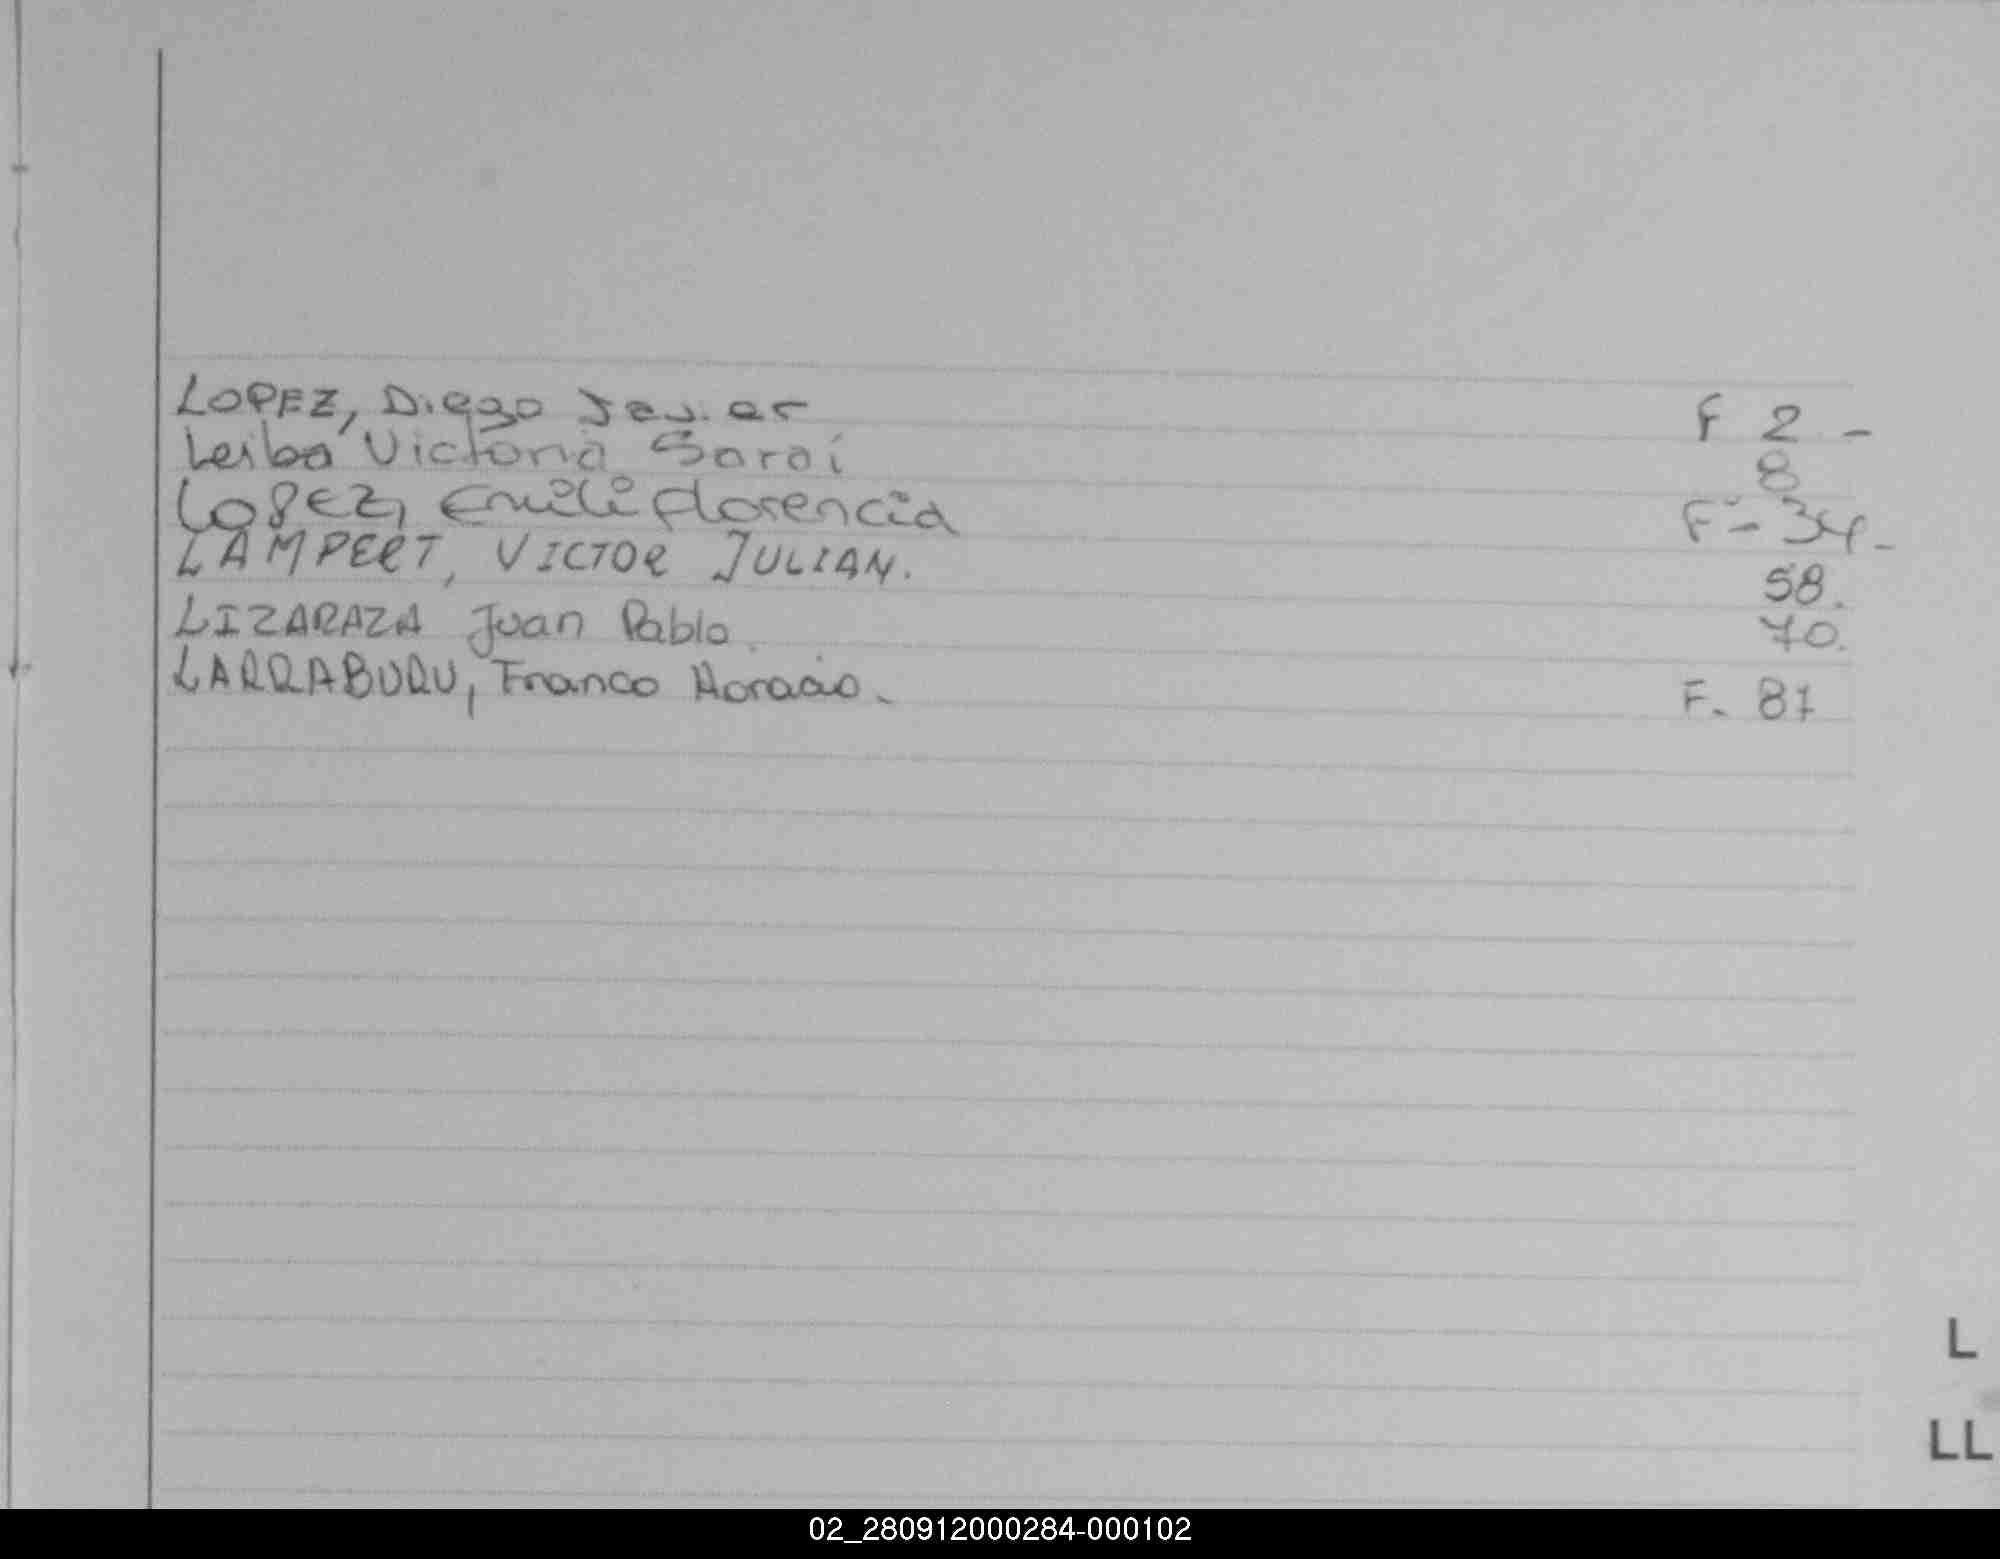 LOPEZ, Diego Javier F 2 -
Leiba Victoria Sarai 8
Lopez, Emili Florencia F - 34.-
LAMPERT, VICTOR JULIAN. 58.
LIZARAZA Juan Pablo. 70.
LARRABURU, Franco Horacio. F. 87
L
LL
02_280912000284-000102